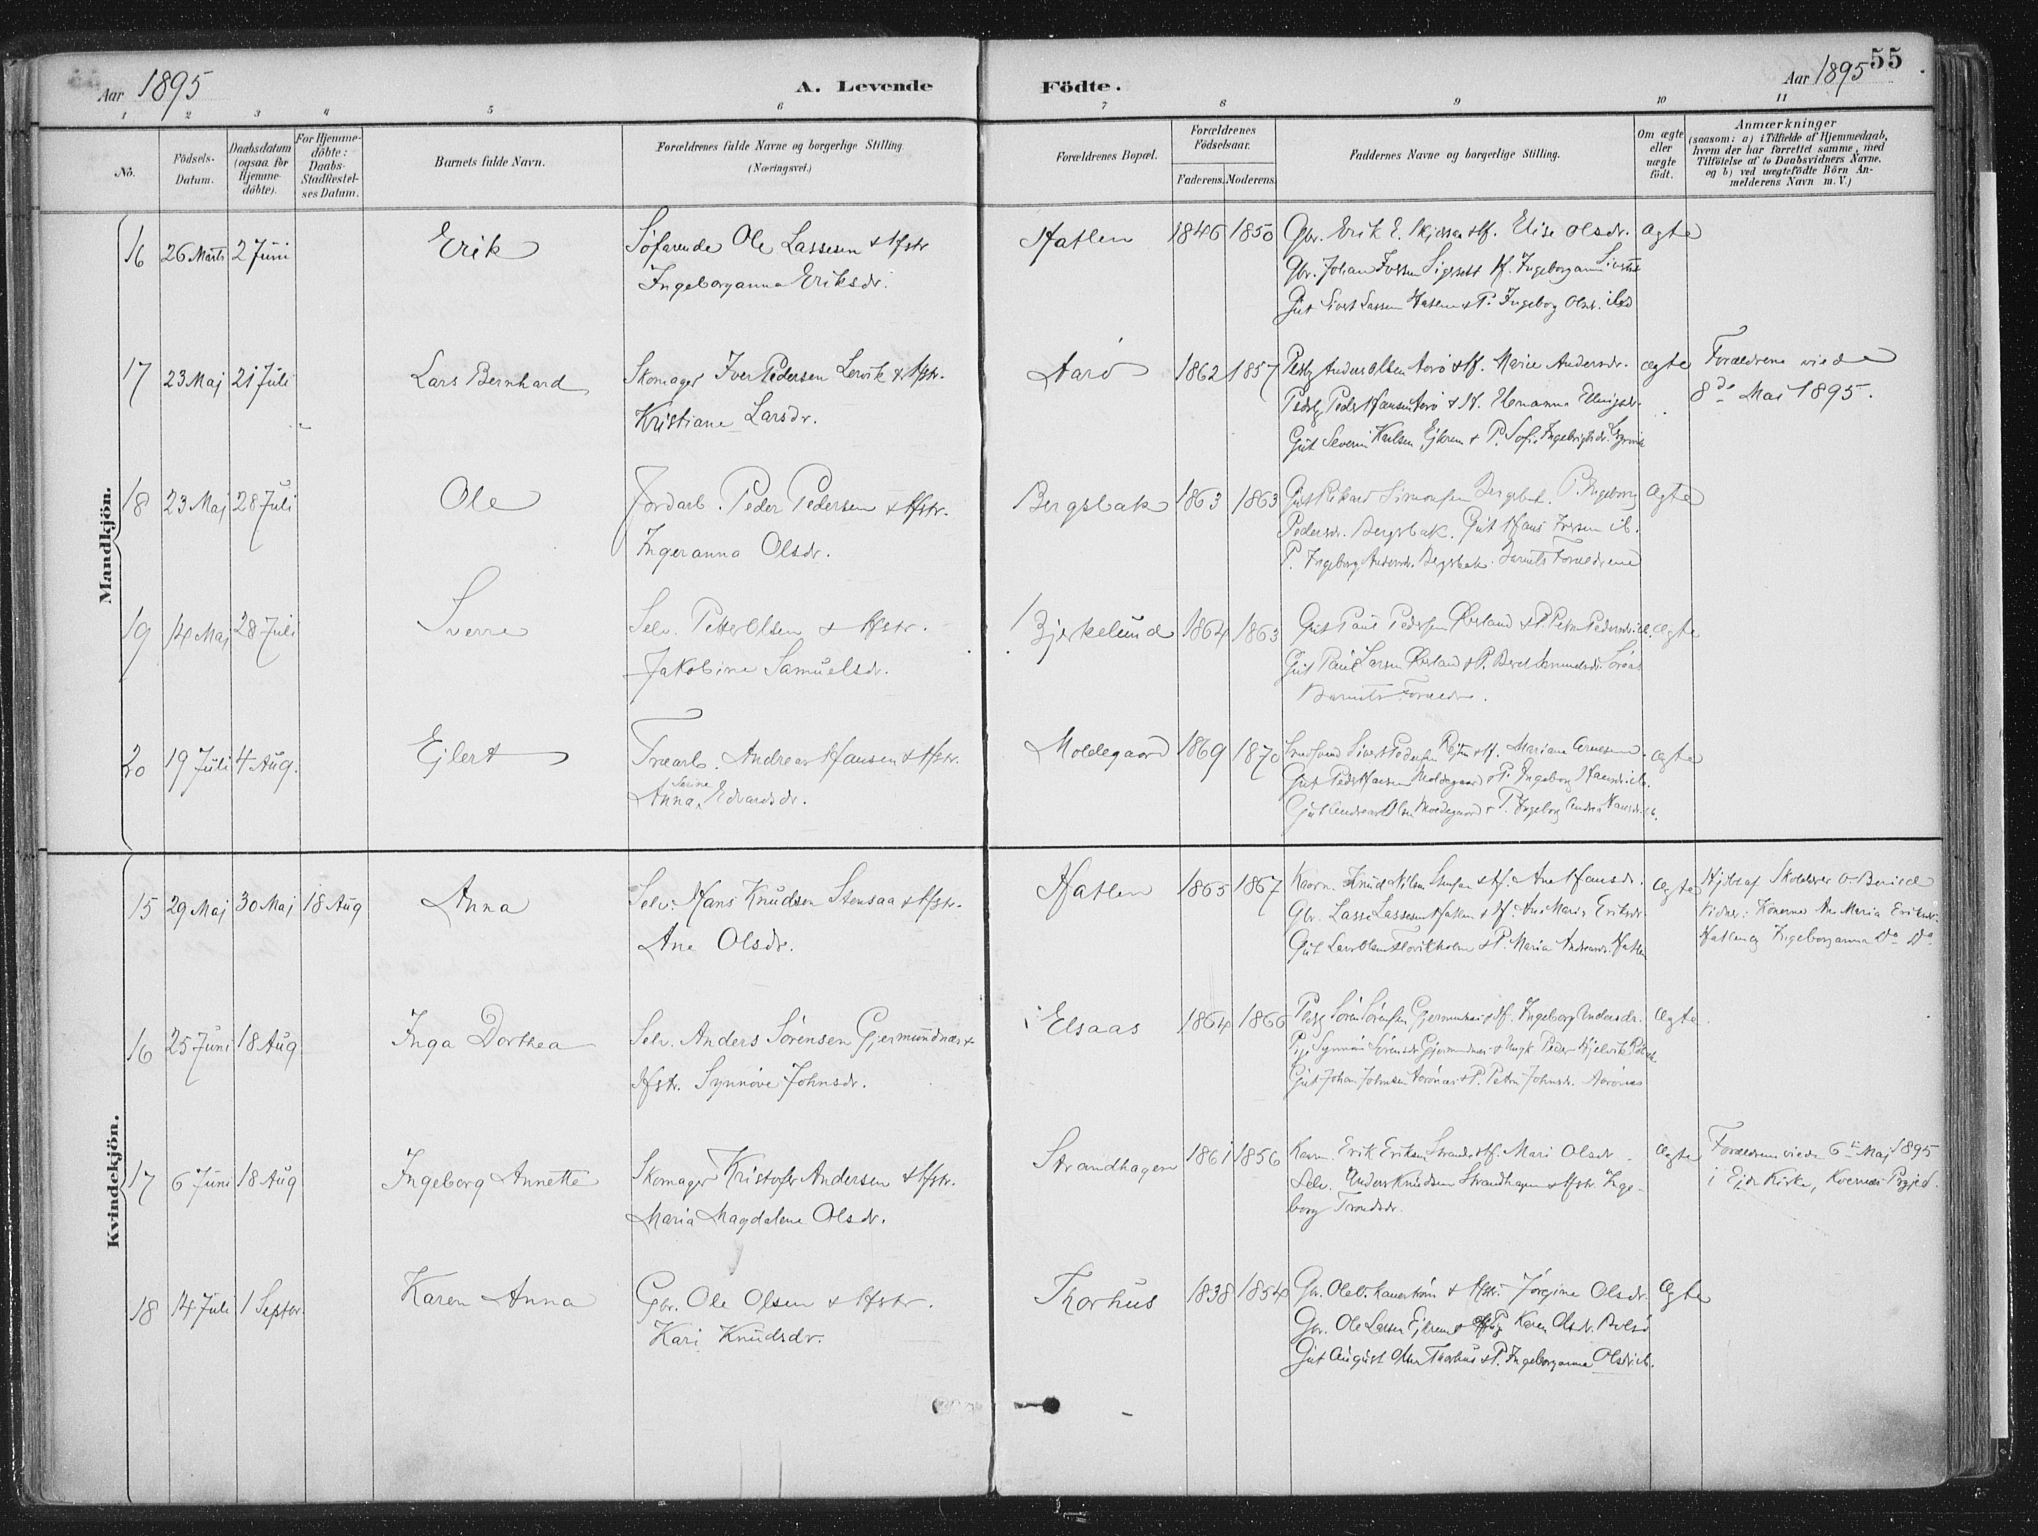 Aar 1895 A. Levende Födte. Aar 1895 55
1 2 3 4 5 6 7 8 9 10 11
No. Födsels-Datum. Daabsdatum (ogsaa for Hjemmedöbte). For Hjemmedöbte: Daabs-Stadfæstelses Datum. Barnets fulde Navn. Forældrenes fulde Navne og borgerlige Stilling (Næringsvei.) Forældrenes Bopæl. Forældrenes Födselsaar. Faderens. Moderens. Faddernes Navne og borgerlige Stilling. Om ægte eller uægte födt. Anmærkninger (saasom: a) i Tilfælde af Hjemmedaab, hvem der har forrettet samme, med Tilföielse af to Daabsvidners Navne, og b) ved uægtefödte Börn Anmelderens Navn m. V.)
Mandkjön.
16 26 Marts 2 Juni Erik Söfarende Ole Lassesen & Hstr Hatlen 1846 1850 Gbr. Erik E. & Hf. Elise Olsdr. Ægte
Ingeborganna Eriksdr. Gbr. Johan Iversen Hf. Ingeborganna
Gut Sivert Lassesen Hatlen & P. Ingeborg Olsdr. ibd
17 23 Maj 21 Juli Lars Bernhard Skomager Iver Pedersen Lervik & Hstr. Aarö 1862 1857 Anders Olsen Aarö & Hf. Marie Andersdr. ægte Forældrene viede
Kristiane Larsdr. Peder Hansen Aarö & Hf. Ellingsdr. 8de Mai 1895.
Gut Severin Karlsen & P. Sofie Ingebrigtsdr.
18 23 Maj 28 Juli Ole Jordarb. Peder Pedersen & Hstr. Bergsbak 1863 1863 Gut Rikard Simonsen Bergsbak. P. Ingeborg Ægte
Ingeranna Olsdr. Pedersdr. Bergsbak. Gut Hans Iversen ib.
P. Ingeborg Andersdr. Bergsbak. Barnets Forældrene
19 14 Maj 28 Juli Sverre Selv. Petter Olsen & Hstr. Bjerkelund 1864 1863 Gut Paul Pedersen & P. Petra Pedersdr. ib. ægte
Jakobine Samuelsdr. Gut Paul Larsen & P. Beret
Barnets Forældre.
20 19 Juli 4 Aug. Ejlert Træarb. Andreas Hansen & Hstr. Moldegaard 1869 1870 Sivert Pedersen & Hf. Mariane Arnesen ægte
Anna Serine Edvardsdr. Gut Peder Hansen Moldegaard & P. Ingeborg Hansdr. ib.
Gut Andreas Olsen Moldegaard & P. Ingeborg Andrea Hansdr. ib.
Kvindekjön.
15 29 Maj 30 Maj 18 Aug Anna Selv. Hans Knudsen Stensaa & Hstr. Hatlen 1865 1867 Kaarm. Knud Nilsen & Hf. Ane Hansdr. Ægte Hjdb af Skolelærer O
Ane Olsdr. Gbr. Lasse Lassesen Hatlen & Hf. Ane Maria Eriksdr. Vidner: Konerne Ane Maria Eriksdr.
Gut Lars Olsen & P. Maria Andreasdr. Hatlen Hatlen og Ingeborganna Do Do
16 25 Juni 18 Aug Inga Dorthea Selv. Anders Sörensen Gjermundnæs & Elsaas 1864 1866 Sören Sörensen Gjermundnæs & Hf. Ingeborg Andersdr. Ægte.
Hstr. Synnöve Johnsdr. Pige Synnöve Sörensdr. Gjermundnæs & Ungk. Peder Hjelvik
Gut Johan Johnsen Aarönæs & P. Petra Johnsdr. Aarönæs
17 6 Juni 18 Aug Ingeborg Annette Skomager Kristofer Andersen & Hstr. Strandhagen 1861 1856 Kaarm. Erik Eriksen Strande & Hf. Mari Olsdr. Ægte Forældrene viede 6te Maj 1895
Maria Magdalene Olsdr. Selv. Anders Knudsen Strandhagen & Hstr. Inge- i Ejde Kirke, Kvernæs Prgjed.
borg Trondsdr.
18 14 Juli 1 Septbr. Karen Anna Gbr. Ole Olsen & Hstr. Thorhus 1838 1854 Gbr. Ole & Hstr. Jörgine Olsdr. Ægte
Kari Knudsdr. Gbr. Ole Larsen & Pig Karen Olsdr. Bolsö
Gut August Olsen Thorhus & P. Ingeborganna Olsdr. ib.